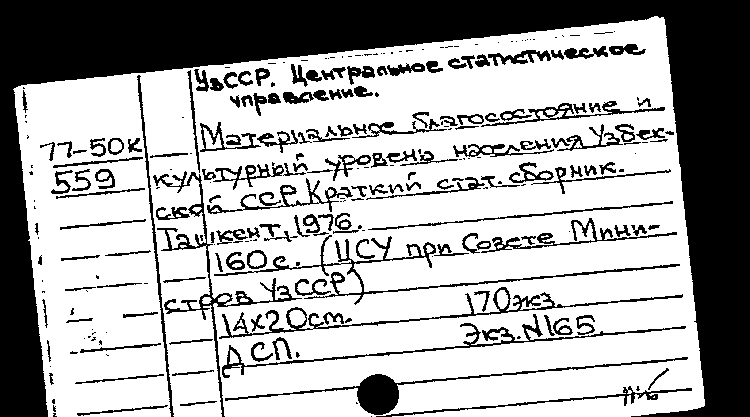 УзССР. Центральное статистическое
управление.
77-50к Материальное благосостояние и
559 культурный уровень населения Узбек-
ской ССР. Краткий стат. сборник.
Ташкент, 1976.
160с. (ЦСУ при Совете Мини-
стров УзССР)
14х20см. 170экз.
ДСП. Экз.N165.